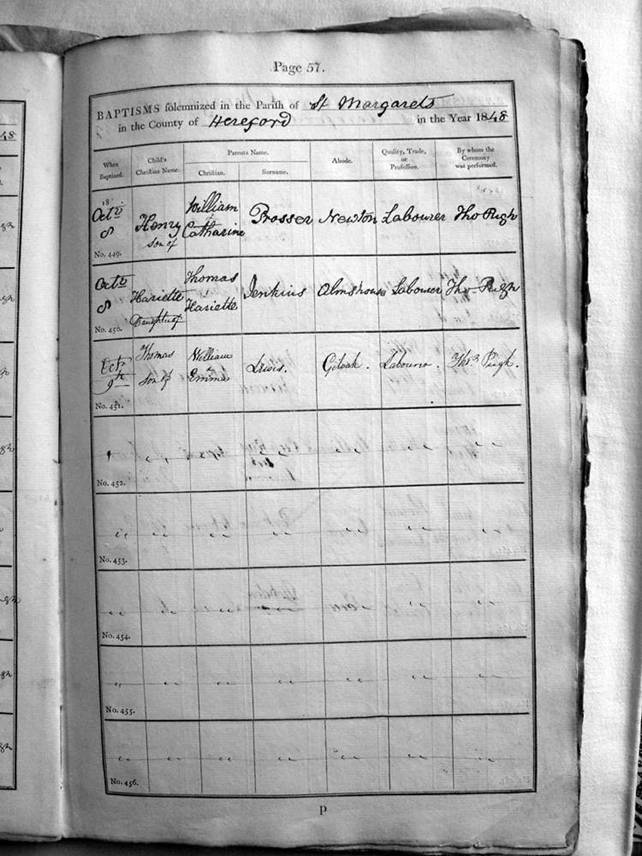 Page 57.
BAPTISMS solemnized in the Parish of St Margarets
in the County of Hereford in the Year 1848
When Baptized. Child's Christian Name. Parents Name. Christian. Surname. Abode. Quality, Trade, or Profession. By whom the Ceremony was performed.
18
Octr 8 Henry son of William & Catharine Prosser Newton Labourer Tho Pugh
No. 449.
Octr 8 Hariette Daughter of Thomas & Hariette Jenkins Almshouse Labourer Tho Pugh
No. 450.
Octr 9th Thomas son of William & Emma Lewis. Labourer. Thos Pugh.
No. 451.
No. 452.
No. 453.
No. 454.
No. 455.
No. 456.
P
48